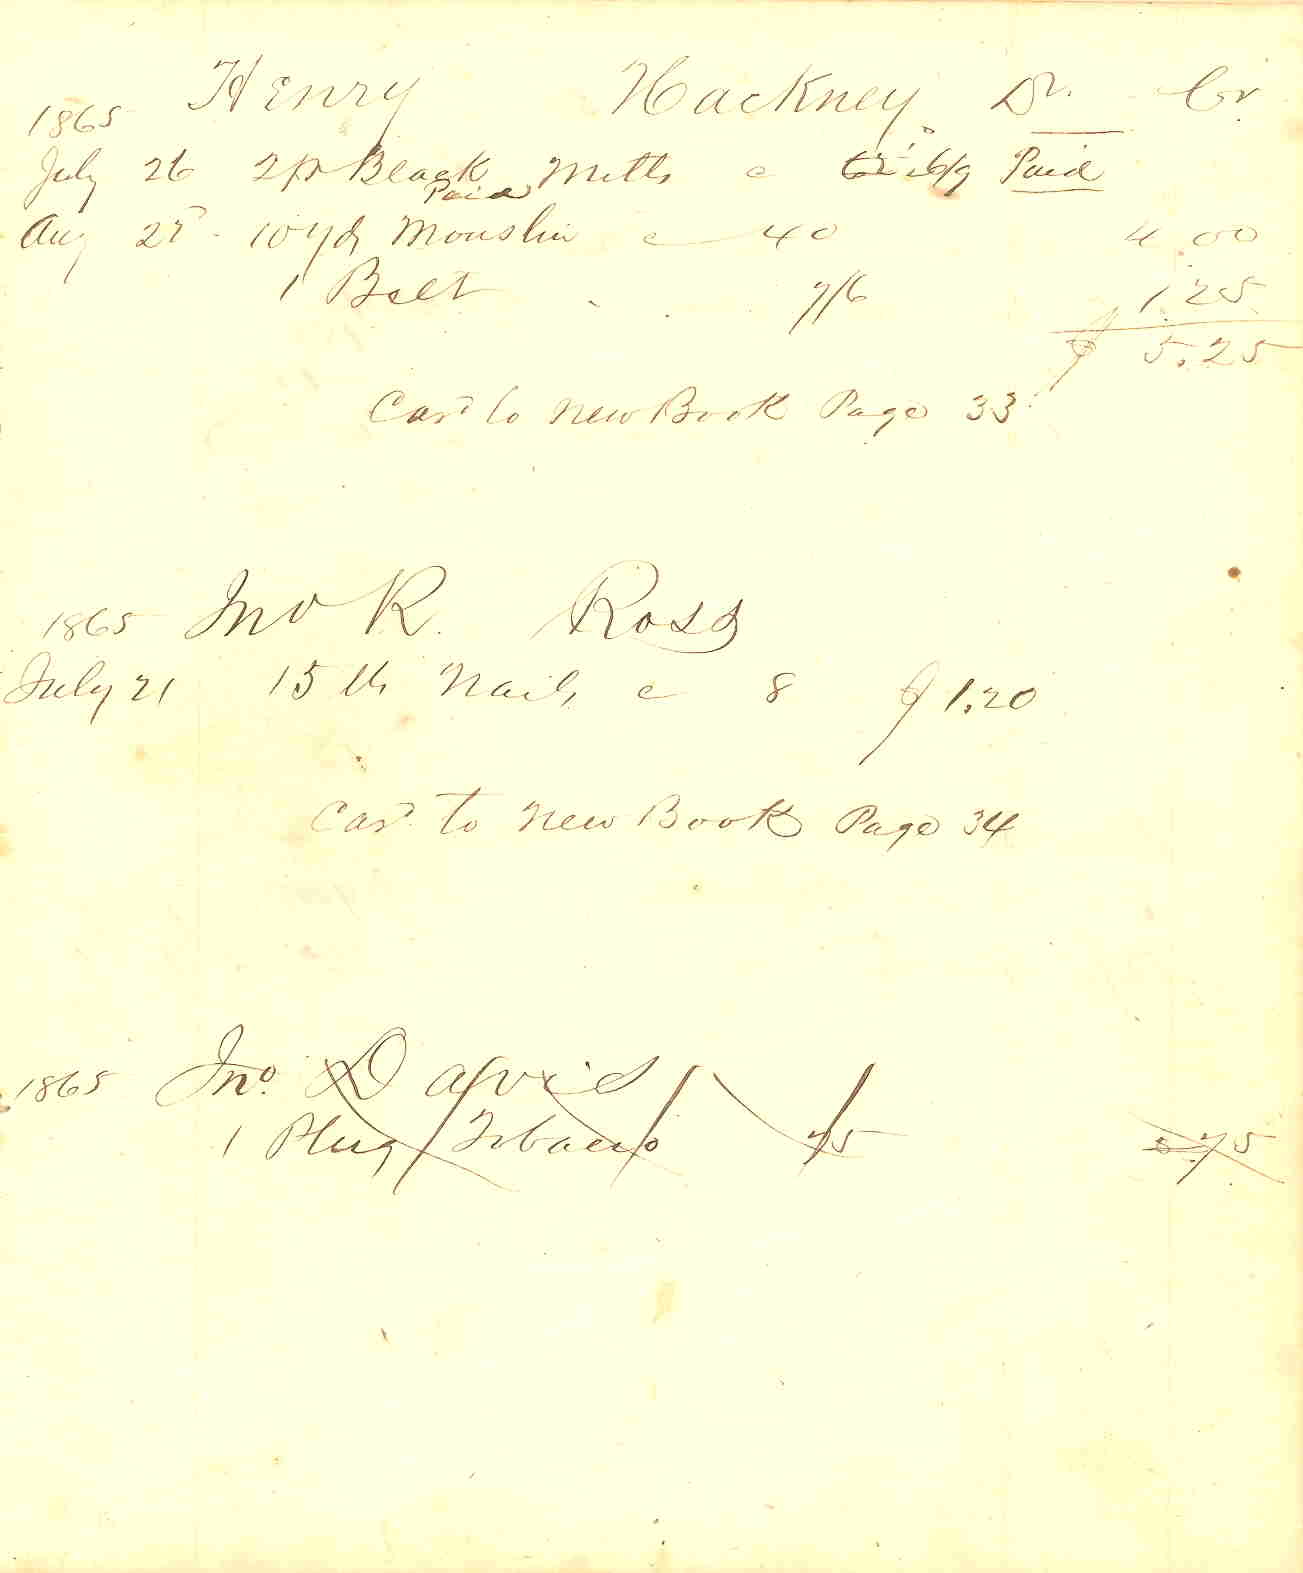 Henry Hackney Dr. Cr.
1865
July 26 2 pr Black Mitts c Paid
Paid
Aug 25 10 yds Mouslin c 40 4.00
1 Belt 7/6 1.25
$ 5.25
Card to New Book Page 33
1865 Jno R. Ross
July 21 15 lb Nails c 8 $ 1.20
Card to New Book Page 34
1865 Jno. Davis
1 Plug Tobacco 75 0.75